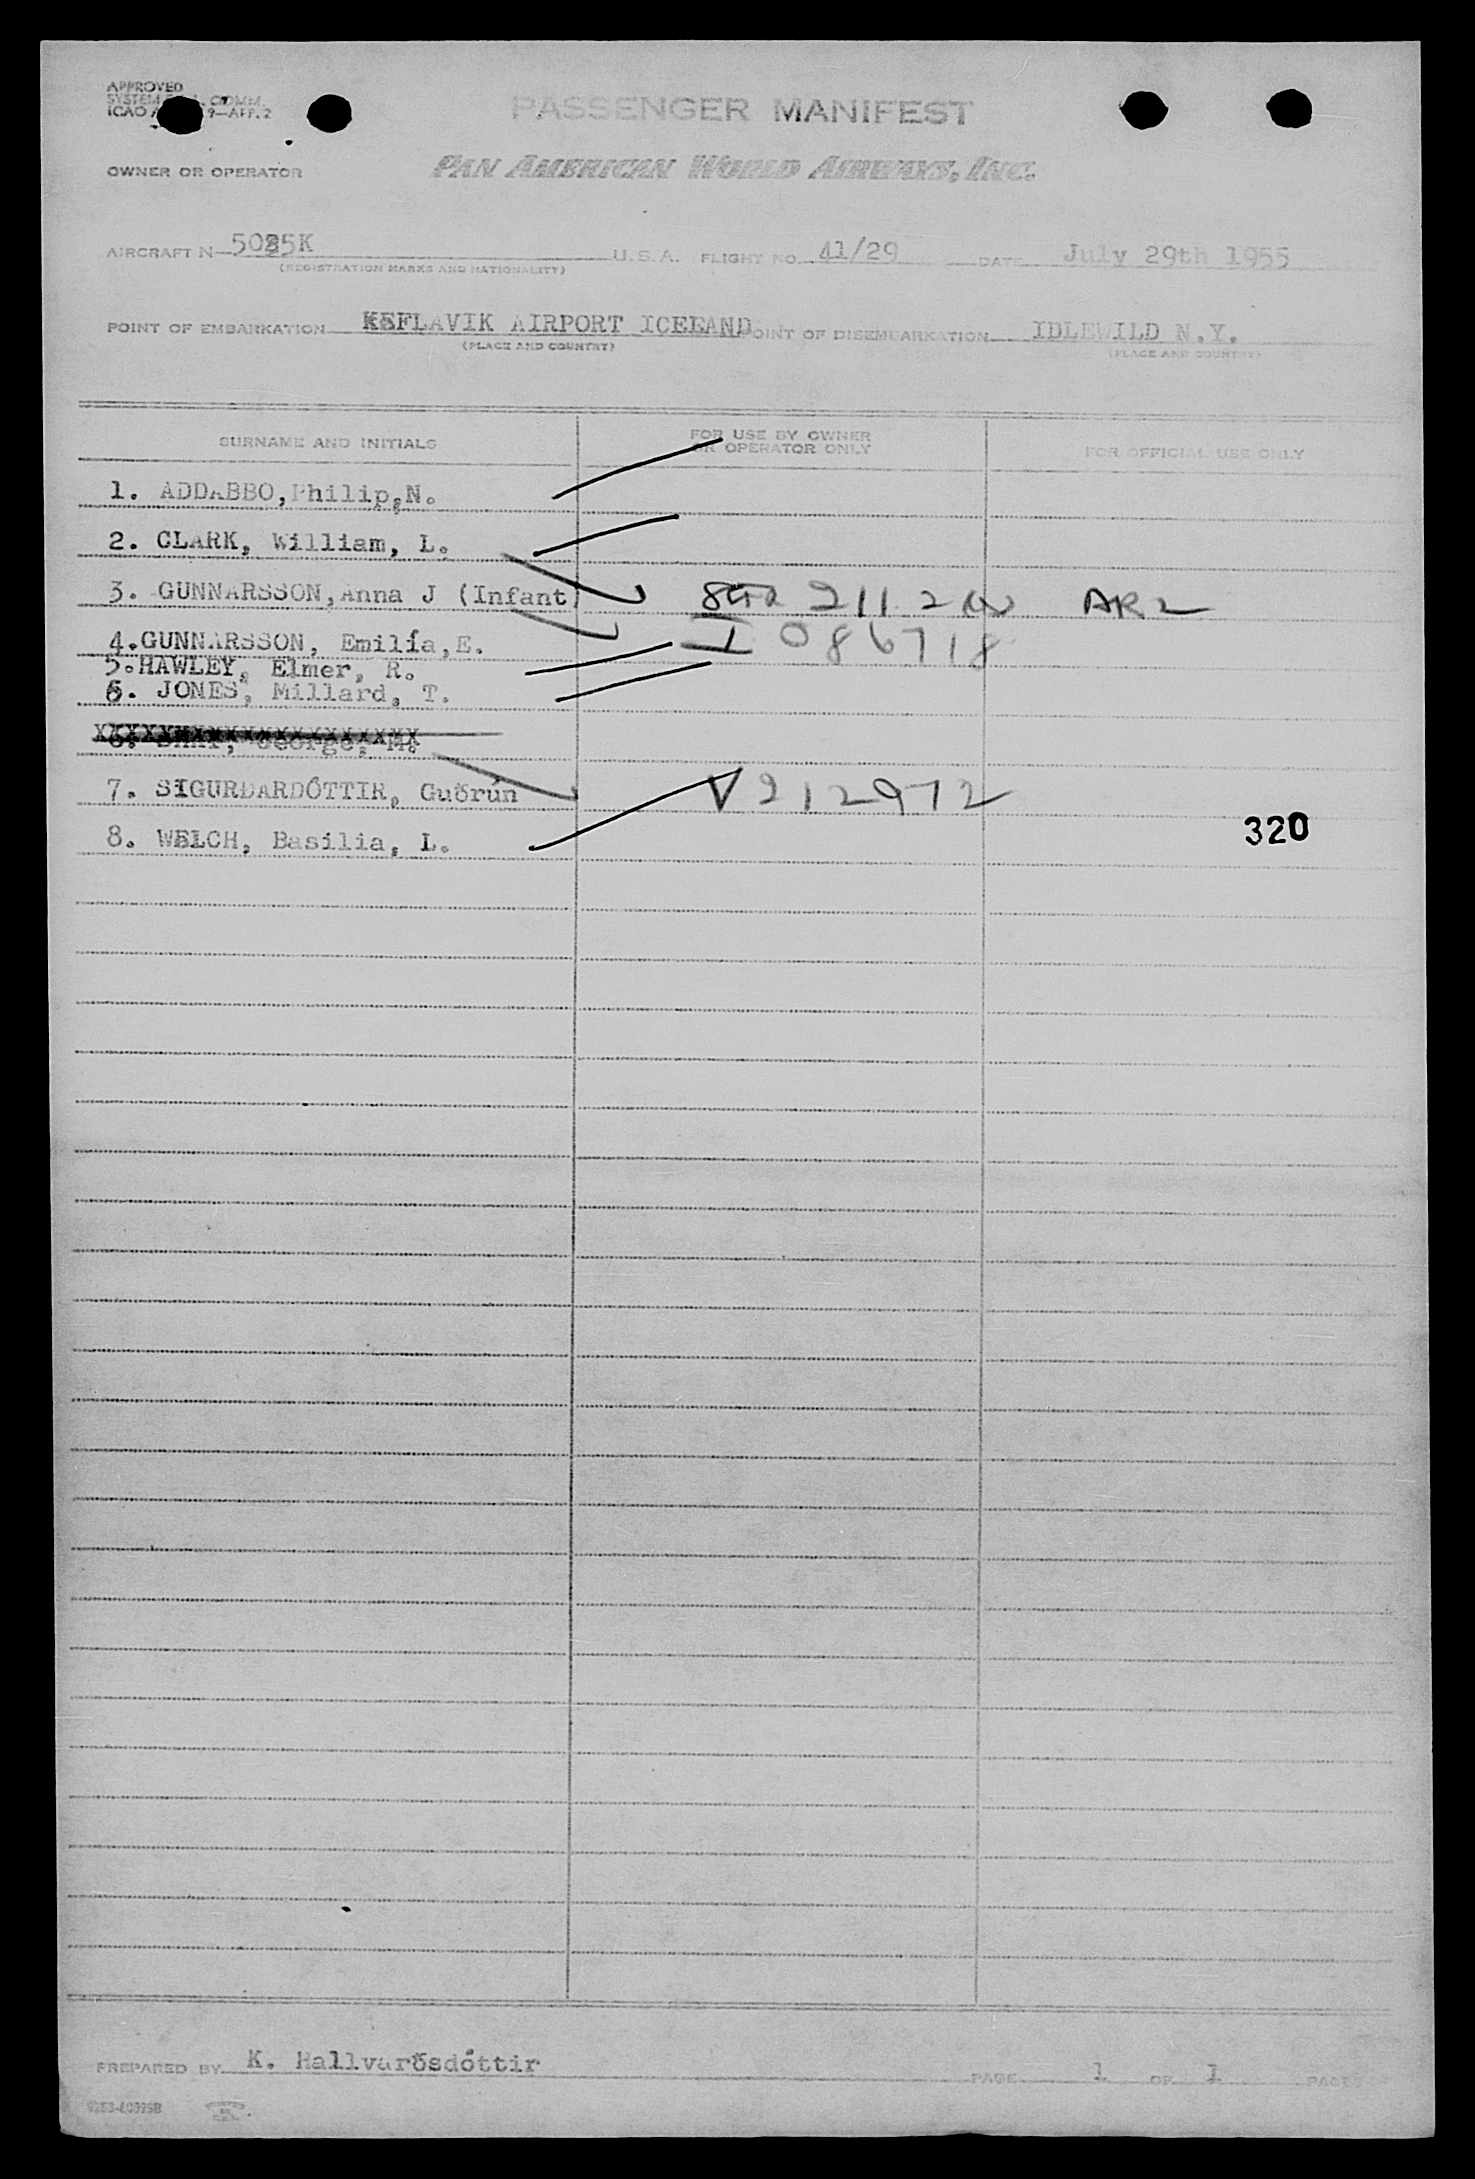 APPROVED
SYSTEM COMM.
ICAO 9—APP. 2
PASSENGER MANIFEST
OWNER OR OPERATOR PAN AMERICAN WORLD AIRWAYS, INC.
AIRCRAFT N 5025K U.S.A. FLIGHT NO. 41/29 DATE July 29th 1955
(REGISTRATION MARKS AND NATIONALITY)
POINT OF EMBARKATION KEFLAVIK AIRPORT ICELAND POINT OF DISEMBARKATION IDLEWILD N.Y.
(PLACE AND COUNTRY) (PLACE AND COUNTRY)
SURNAME AND INITIALS FOR USE BY OWNER OR OPERATOR ONLY FOR OFFICIAL USE ONLY
1. ADDABBO,Philip,N.
2. CLARK, William, L.
3. GUNNARSSON,Anna J (Infant) 211 2 AR2
4.GUNNARSSON, Emilía,E. I 086718
5.HAWLEY, Elmer, R.
6. JONES, Millard, T.
6. George, M.
7. SIGURDARDÓTTIR, Guðrún V 212972
8. WELCH, Basilia, L.
320
PREPARED BY K. Hallvarðsdóttir PAGE 1 OF 1 PAGES